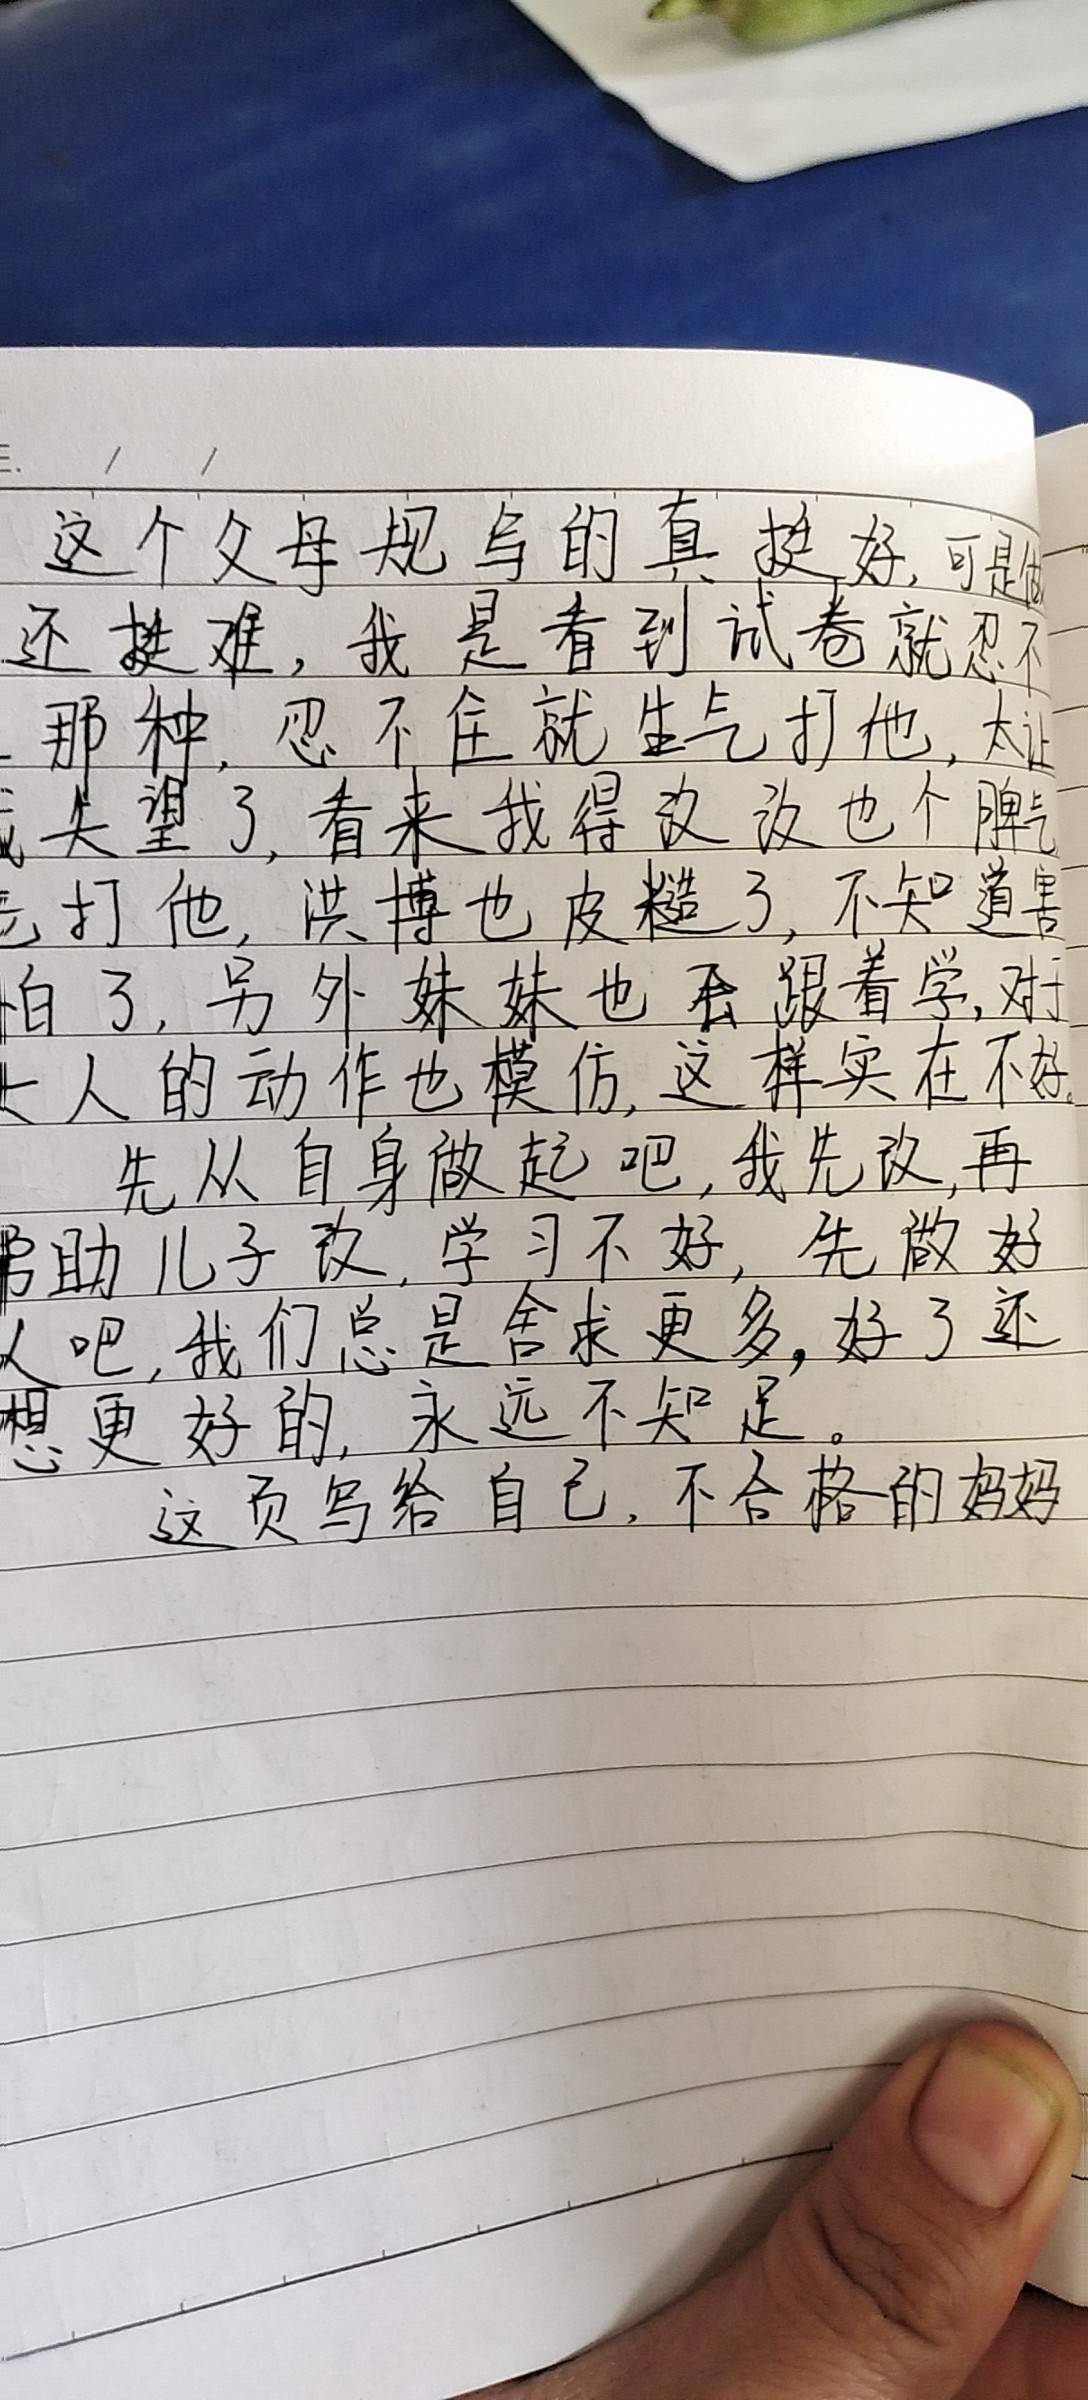 这个父母规写的真挺好,可是做
还挺难,我是看到试卷就忍不
那种,忍不住就生气打他,太让
我失望了,看来我得改改也个脾气
打他,洪博也皮糙了,不知道害
怕了,另外妹妹也会跟着学,对于
大人的动作也模仿,这样实在不好。
先从自身做起吧,我先改,再
帮助儿子改,学习不好,先做好
人吧,我们总是舍求更多,好了还
想更好的,永远不知足。
这页写给自己,不合格的妈妈